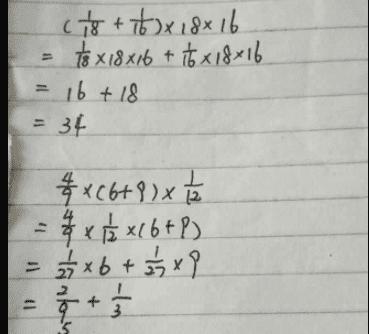 (1/18 + 1/16)×18×16
= 1/18×18×16 + 1/16×18×16
= 16 + 18
= 34
4/9×(6+9)×1/12
= 4/9×1/12×(6+9)
= 1/27×6 + 1/27×9
= 2/9 + 1/3
5